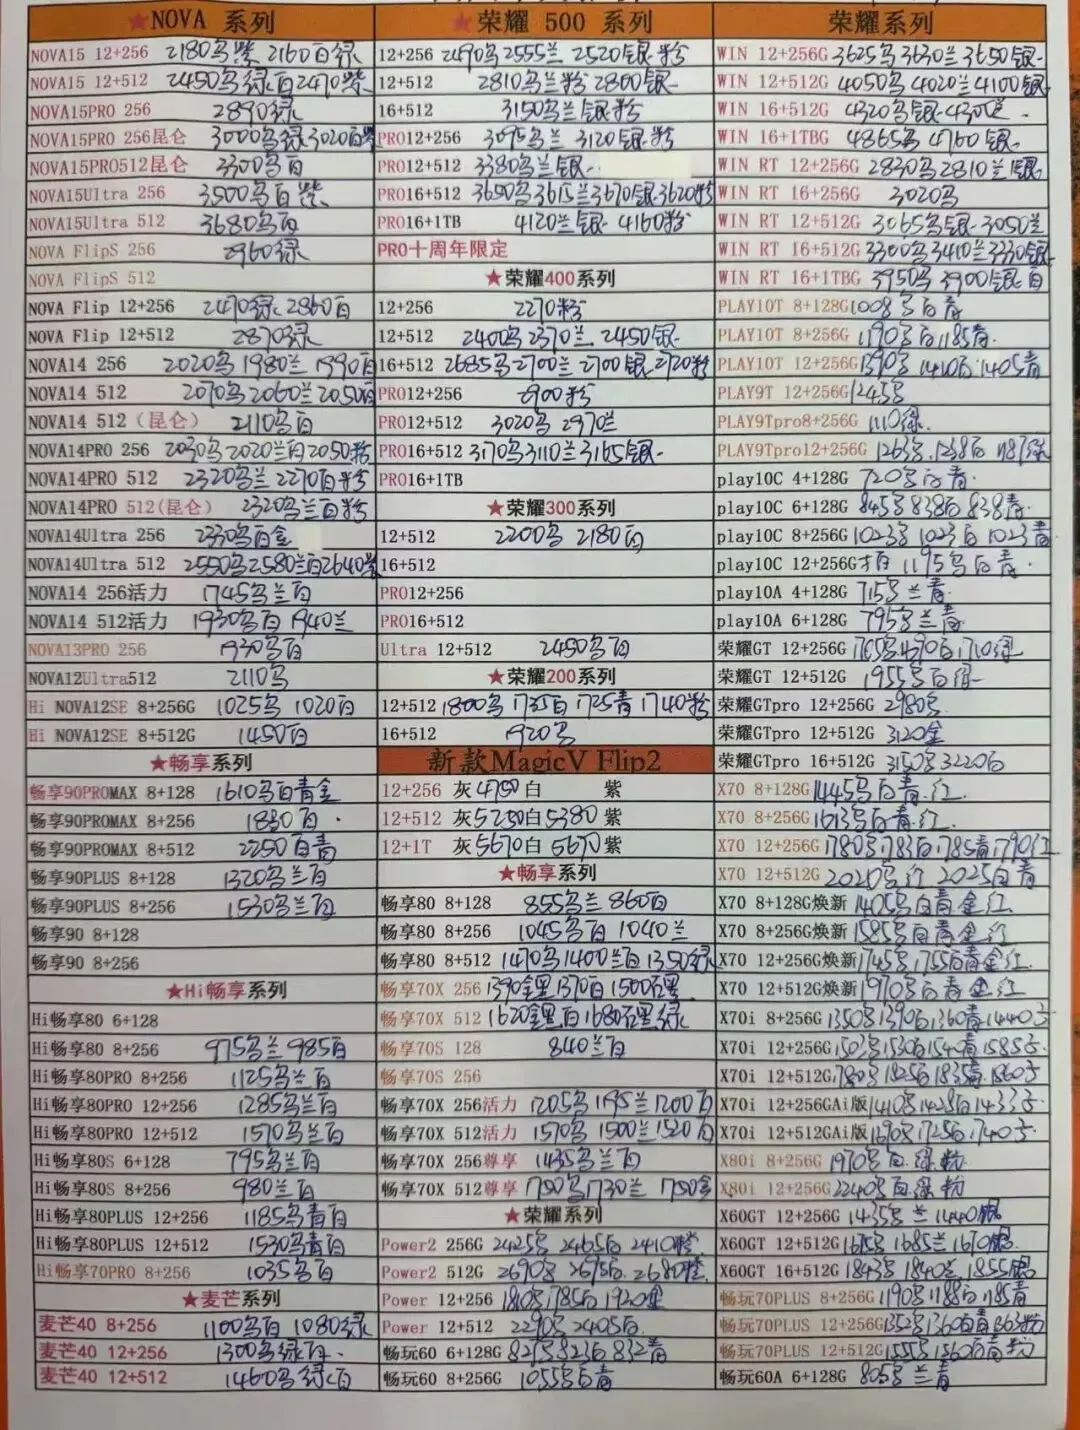 ★NOVA 系列
NOVA15 12+256 2180乌紫 2160白绿
NOVA15 12+512 2450乌绿白2470紫
NOVA15PRO 256 2890绿
NOVA15PRO 256昆仑 3000乌绿3020白紫
NOVA15PRO512昆仑 3300乌白
NOVA15Ultra 256 3500乌白紫
NOVA15Ultra 512 3680乌白
NOVA FlipS 256 2960绿
NOVA FlipS 512
NOVA Flip 12+256 2470绿 2860白
NOVA Flip 12+512 2870绿
NOVA14 256 2020乌 1980兰 1990白
NOVA14 512 2070乌2060兰2050白
NOVA14 512（昆仑） 2110乌白
NOVA14PRO 256 2030乌2020兰白2050粉
NOVA14PRO 512 2320乌兰 2270白粉
NOVA14PRO 512(昆仑) 2320乌兰白粉
NOVA14Ultra 256 2330乌白金
NOVA14Ultra 512 2550乌2580兰白2640紫
NOVA14 256活力 1745乌兰白
NOVA14 512活力 1930乌白 1940兰
NOVA13PRO 256 1930乌白
NOVA12Ultra512 2110乌
Hi NOVA12SE 8+256G 1025乌 1020白
Hi NOVA12SE 8+512G 1450白
★畅享系列
畅享90PROMAX 8+128 1610乌白青金
畅享90PROMAX 8+256 1830白
畅享90PROMAX 8+512 2250白青
畅享90PLUS 8+128 1320乌兰白
畅享90PLUS 8+256 1530乌兰白
畅享90 8+128
畅享90 8+256
★Hi畅享系列
Hi畅享80 6+128
Hi畅享80 8+256 975乌兰 985白
Hi畅享80PRO 8+256 1125乌兰白
Hi畅享80PRO 12+256 1285乌兰白
Hi畅享80PRO 12+512 1570乌兰白
Hi畅享80S 6+128 795乌兰白
Hi畅享80S 8+256 980兰白
Hi畅享80PLUS 12+256 1185乌青白
Hi畅享80PLUS 12+512 1530乌青白
Hi畅享70PRO 8+256 1035乌白
★麦芒系列
麦芒40 8+256 1100乌白 1080绿
麦芒40 12+256 1300乌绿白
麦芒40 12+512 1460乌绿白
★荣耀 500 系列
12+256 2490乌2555兰 2520银粉
12+512 2810乌兰粉 2800银
16+512 3150乌兰银粉
PRO12+256 3095乌兰 3120银粉
PRO12+512 3380乌兰银
PRO16+512 3650乌3615兰3670银3620粉
PRO16+1TB 4120兰银 4160粉
PRO十周年限定
★荣耀400系列
12+256 2270粉
12+512 2400乌 2370兰 2450银
16+512 2685乌2700兰2700银2720粉
PRO12+256 2900粉
PRO12+512 3020乌 2970兰
PRO16+512 3170乌3110兰3165银
PRO16+1TB
★荣耀300系列
12+512 2200乌 2180白
16+512
PRO12+256
PRO16+512
Ultra 12+512 2450乌白
★荣耀200系列
12+512 1800乌 1735白 1725青 1740粉
16+512 1920乌
新款MagicV Flip2
12+256 灰4750白 紫
12+512 灰5250白5380紫
12+1T 灰5670白5670紫
★畅享系列
畅享80 8+128 855乌兰 860白
畅享80 8+256 1045乌白 1040兰
畅享80 8+512 1470乌1400兰白1350绿
畅享70X 256 1390金黑1370白
畅享70X 512 1620金黑白
畅享70S 128 840兰白
畅享70S 256
畅享70X 256活力 1205乌 1195兰1200白
畅享70X 512活力 1570乌 1500兰1520白
畅享70X 256尊享 1435乌兰白
畅享70X 512尊享 1750乌1730兰 1750金
★荣耀系列
Power2 256G 2425乌 2465白 2410橙
Power2 512G 2690乌 2675白 2680橙
Power 12+256 1810乌1785白 1920金
Power 12+512 2290乌 2405白
畅玩60 6+128G 825乌825白832青
畅玩60 8+256G 1055乌白青
荣耀系列
WIN 12+256G 3625乌3630兰3650银
WIN 12+512G 4050乌4020兰4100银
WIN 16+512G 4320乌银4300兰
WIN 16+1TBG 4865乌 4760银
WIN RT 12+256G 2830乌2810兰银
WIN RT 16+256G 3020乌
WIN RT 12+512G 3065乌银3050兰
WIN RT 16+512G 3300乌3410兰3330银
WIN RT 16+1TBG 3950乌3900银白
PLAY10T 8+128G 1008乌白青
PLAY10T 8+256G 1190乌白1185青
PLAY10T 12+256G 1390乌 1410白1405青
PLAY9T 12+256G 1245乌
PLAY9Tpro8+256G 1110绿
PLAY9Tpro12+256G 1263乌 1238白 1187绿
play10C 4+128G 720乌白青
play10C 6+128G 845乌838白838青
play10C 8+256G 1023乌 1023白 1023青
play10C 12+256G 1195乌白青
play10A 4+128G 715乌兰青
play10A 6+128G 795乌兰青
荣耀GT 12+256G 1710绿
荣耀GT 12+512G 1955乌白绿
荣耀GTpro 12+256G 2980乌
荣耀GTpro 12+512G 3120金
荣耀GTpro 16+512G 3150乌3220白
X70 8+128G 1445乌白青红
X70 8+256G 1613乌白青红
X70 12+256G 1780乌1783白1785青1790红
X70 12+512G 2020乌红 2025白青
X70 8+128G焕新 1405乌白青金红
X70 8+256G焕新 1585乌白青金红
X70 12+256G焕新 1745乌1755白青金红
X70 12+512G焕新 1970乌白青金红
X70i 8+256G 1350乌1390白1360青1440
X70i 12+256G 1503乌1530白1540青1585
X70i 12+512G 1780乌1825白1835青1860
X70i 12+256GAi版 1410乌1428白1433
X70i 12+512GAi版 1690乌1725白1740
X80i 8+256G 1970乌白绿粉
X80i 12+256G 2240乌白绿粉
X60GT 12+256G 1435乌兰1440银
X60GT 12+512G 1675乌1685兰1670银
X60GT 16+512G 1843乌1840兰1855银
畅玩70PLUS 8+256G 1190乌1188白1185青
畅玩70PLUS 12+256G 1352乌1360白青1363粉
畅玩70PLUS 12+512G 1555乌1560白青粉
畅玩60A 6+128G 805乌兰青